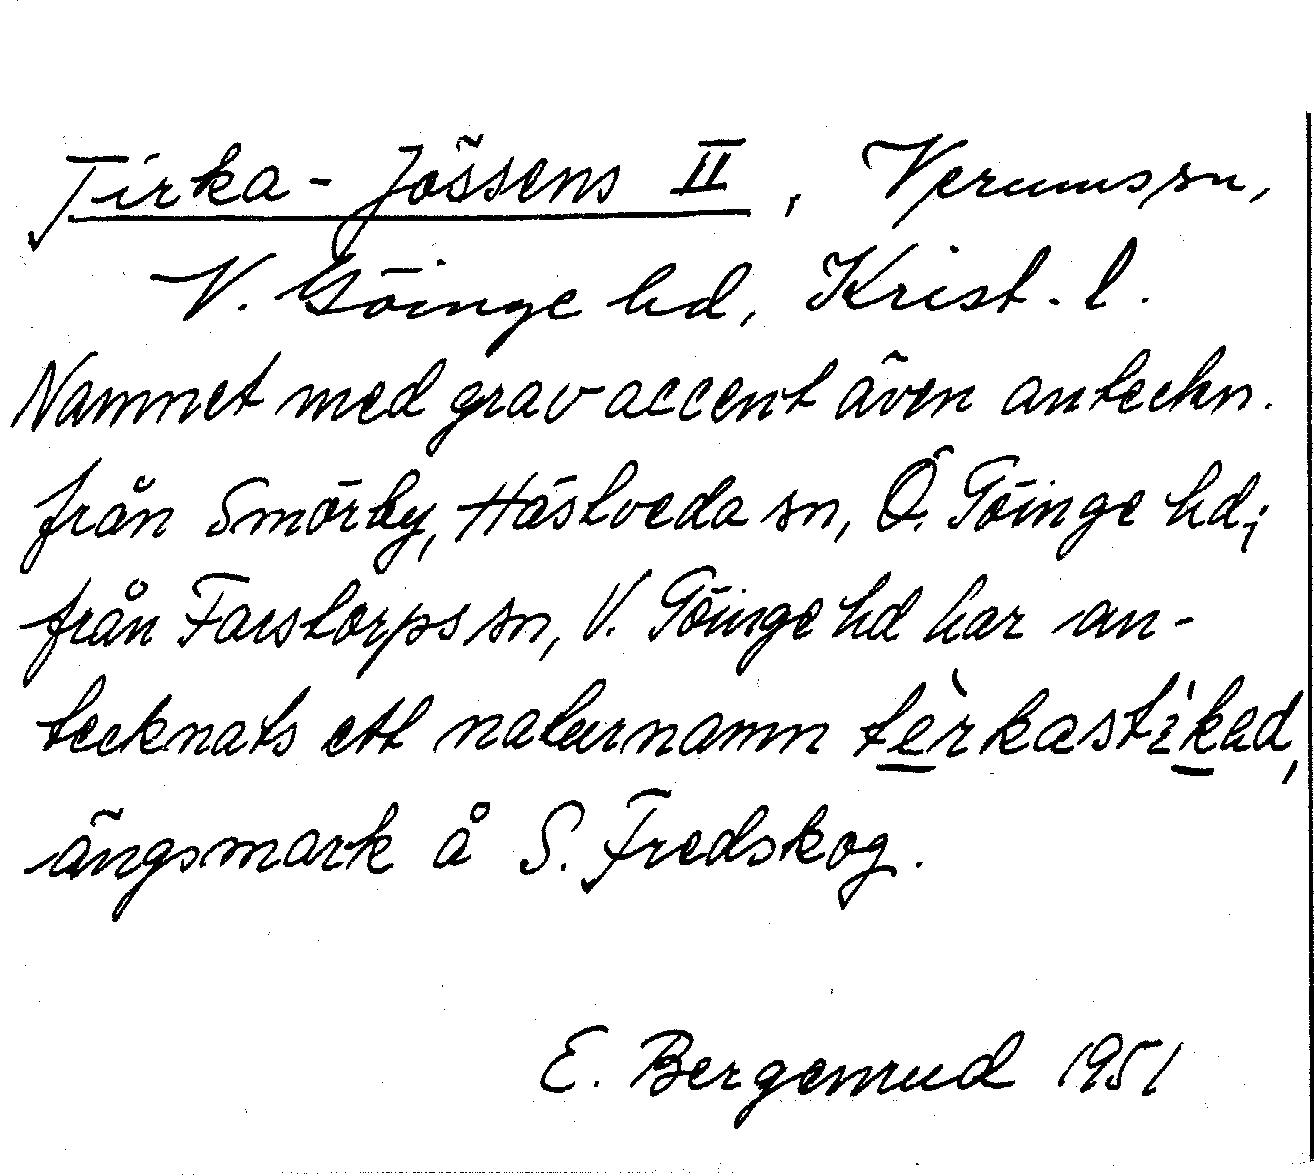 Tirka-Jössens II, Verums sn,
V. Göinge hd, Krist. l.
Namnet med grav accent även anteckn.
från Smörby, Hästveda sn, Ö. Göinge hd;
från Farstorps sn, V. Göinge hd har an-
tecknats ett naturnamn tèrkastikad,
ängsmark å S. Fredskog.
E. Bergenrud 1951